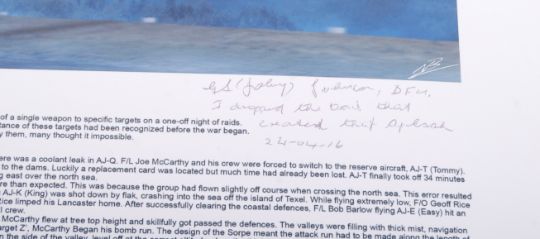 GL (Johnny) Johnson, DFM.
I dropped the bomb that
created that splash
24-04-16
of a single weapon to specific targets on a one-off night of raids.
tance of these targets had been recognized before the war began.
y them, many thought it impossible.
ere was a coolant leak in AJ-Q. F/L Joe McCarthy and his crew were forced to switch to the reserve aircraft, AJ-T (Tommy).
to the dams. Luckily a replacement card was located but much time had already been lost. AJ-T finally took off 34 minutes
g east over the north sea.
re than expected. This was because the group had flown slightly off course when crossing the north sea. This error resulted
AJ-K (King) was shot down by flak, crashing into the sea off the island of Texel. While flying extremely low, F/O Geoff Rice
ice limped his Lancaster home. After successfully clearing the coastal defences, F/L Bob Barlow flying AJ-E (Easy) hit an
l crew.
McCarthy flew at tree top height and skillfully got passed the defences. The valleys were filling with thick mist, navigation
arget Z', McCarthy Began his bomb run. The design of the Sorpe meant the attack run had to be made along the length of
n the side of the valley, level off at the